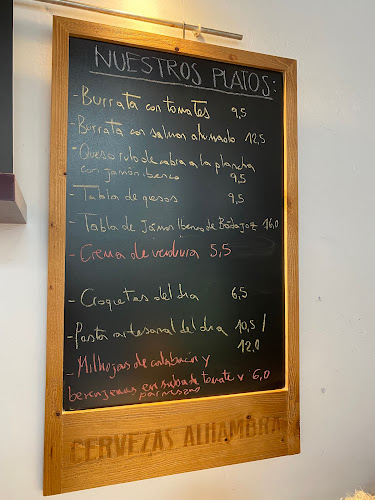 NUESTROS PLATOS:
- Burrata con tomates 9,5
- Burrata con salmon ahumado 12,5
- Queso rulo de cabra a la plancha
con jamón iberico 9,5
- Tabla de quesos 9,5
- Tabla de Jamon Iberico de Badajoz 16,0
- Crema de verdura 5,5
- Croquetas del dia 6,5
- Pasta artesanal del dia 10,5 /
12,0
- Milhojas de calabacin y
berenjenas en salsa de tomate y 6,0
parmesano
CERVEZAS ALHAMBRA